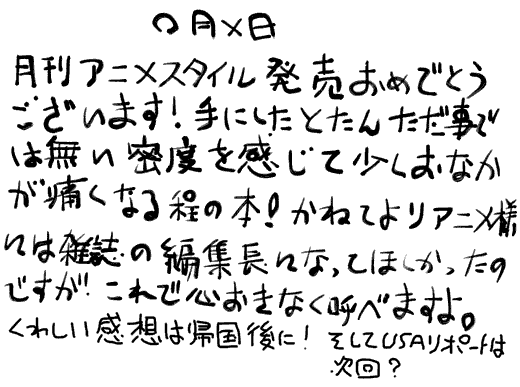 〇月×日
月刊アニメスタイル発売おめでとう
ございます！手にしたとたんただ事で
は無い密度を感じて少しおなか
が痛くなる程の本！かねてよりアニメ様
には雑誌の編集長になってほしかったの
ですが、これで心おきなく呼べますよ。
くわしい感想は帰国後に！そしてUSAリポートは
次回？